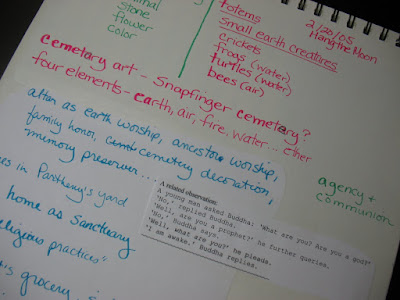 stone
flower
color
totems
small earth creatures
crickets
frogs (water)
turtles (water)
bees (air)
2/20/05
Hang the Moon
cemetary art - Snapfinger cemetery?
four elements - earth, air, fire, water... ether
altar as earth worship, ancestor worship,
family honor, cemetery decoration,
memory preserver...
in Partheny's yard
home as Sanctuary
religious practices"
grocery
agency +
communion
A related observation:
A young man asked Buddha: "What are you? Are you a god?"
"No," replied Buddha.
"Well, are you a prophet?" he further queries.
"No," Buddha says.
"Well, what are you?" he pleads.
"I am awake," Buddha replies.